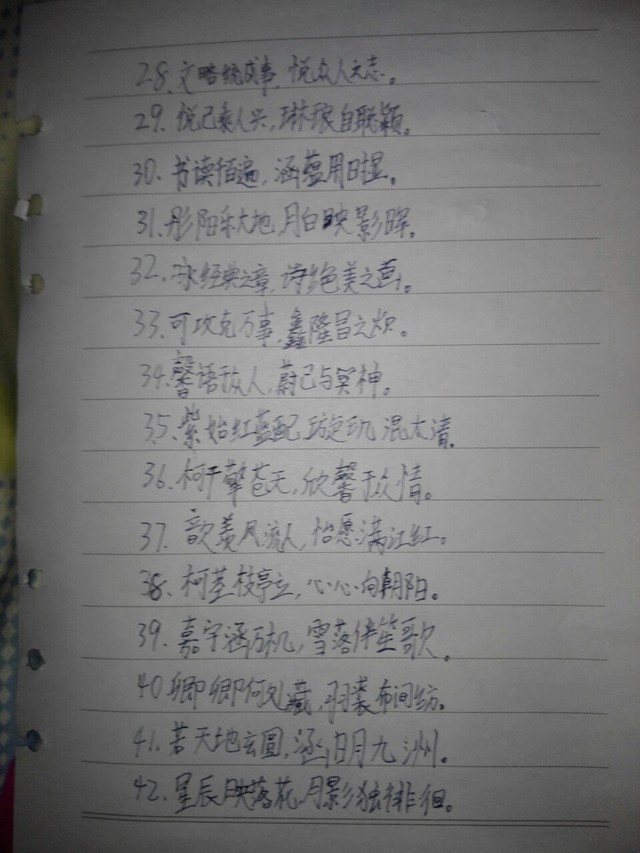 28、文略统成事,悦众人之志。
29、悦己乘人兴,琳琅自聪颖。
30、书读佰遍,涵蕴用日显。
31、彤阳禾大地,月白映影晖。
32、冰经典之章,诗绝美之画。
33、可攻克万事,鑫隆昌之炽。
34、馨语于众人,蔚己与冥神。
35、紫始红蓝配,璇玑混太清。
36、柯干擎苍天,欣馨于众情。
37、歆羡风流人,怡愿满江红。
38、柯茎枝亭立,心心向朝阳。
39、嘉宇涵万机,雪落伴笙歌。
40、卿卿何处藏,羽裳布间纺。
41、若天地玄圆,涵旧月九洲。
42、星辰映落花,月影独徘徊。